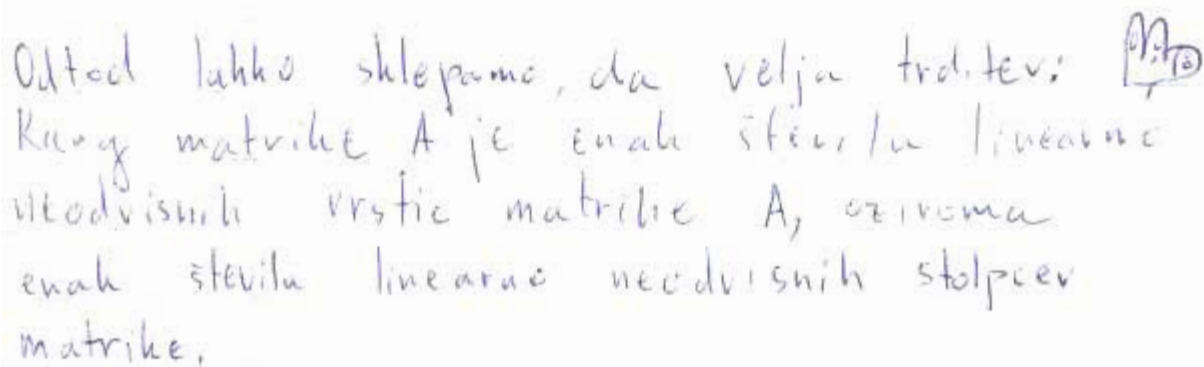 Odtod lahko sklepamo, da velja trditev:
Rang matrike A je enak številu linearno
neodvisnih vrstic matrike A, oziroma
enak številu linearno neodvisnih stolpcev
matrike.